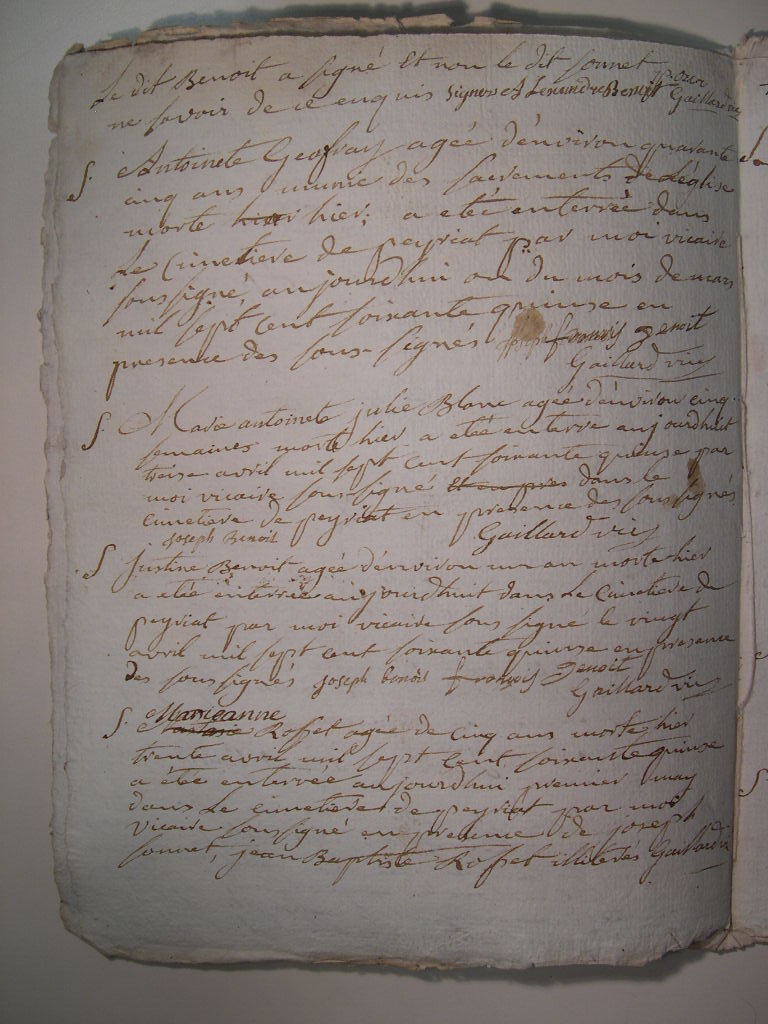 Le dit Benoit a signé Et non le dit sonnet pour
ne savoir de ce enquis signes Alexandre Benoit Gaillard vic
S. Antoinete Geofray agée d'environ quarante
cinq ans munie des sacrements de Léglise
morte hier hier; a etée enterrée dans
Le Cimetiere de peyriat par moi vicaire
soussigné, aujourdhui du mois de mars
mil sept cent soixante quinse en
presence des sous-signés joseph françois Benoit
Gaillard vic
S. Marie antoinete julie Blanc agée d'environ cinq
semaines morte hier a etée enterre aujourdhuit
treise avril mil sept cent soixante quinse par
moi vicaire sous-signé dans le
cimetiere de peyriat en presence des sous signés
joseph Benoit Gaillard vic
S justine Benoit agée d'environ un an morte hier
a etée enterrée aujourdhuit dans Le Cimetiere de
peyriat par moi vicaire sous signé le vingt
avril mil sept cent soixante quinse en presence
des sous signés joseph benoit françois Benoit
Gaillard vic
S. Marieanne
Rosset agée de cinq ans morte hier
trente avril mil sept cent soixante quinse
a étée enterrée aujourdhui premier may
dans Le cimetiere de peyriat par moi
vicaire soussigné en presence de joseph
sonnet, jean Baptiste Rosset illiterés Gaillard vic